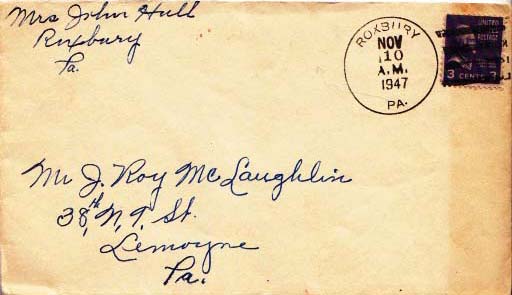 Mrs John Hull
Roxbury
Pa.
ROXBURY
NOV
10
A.M.
1947
PA.
UNITED
STATES
POSTAGE
3 CENTS 3
Mr J. Roy McLaughlin
38th N. 9. St.
Lemoyne
Pa.